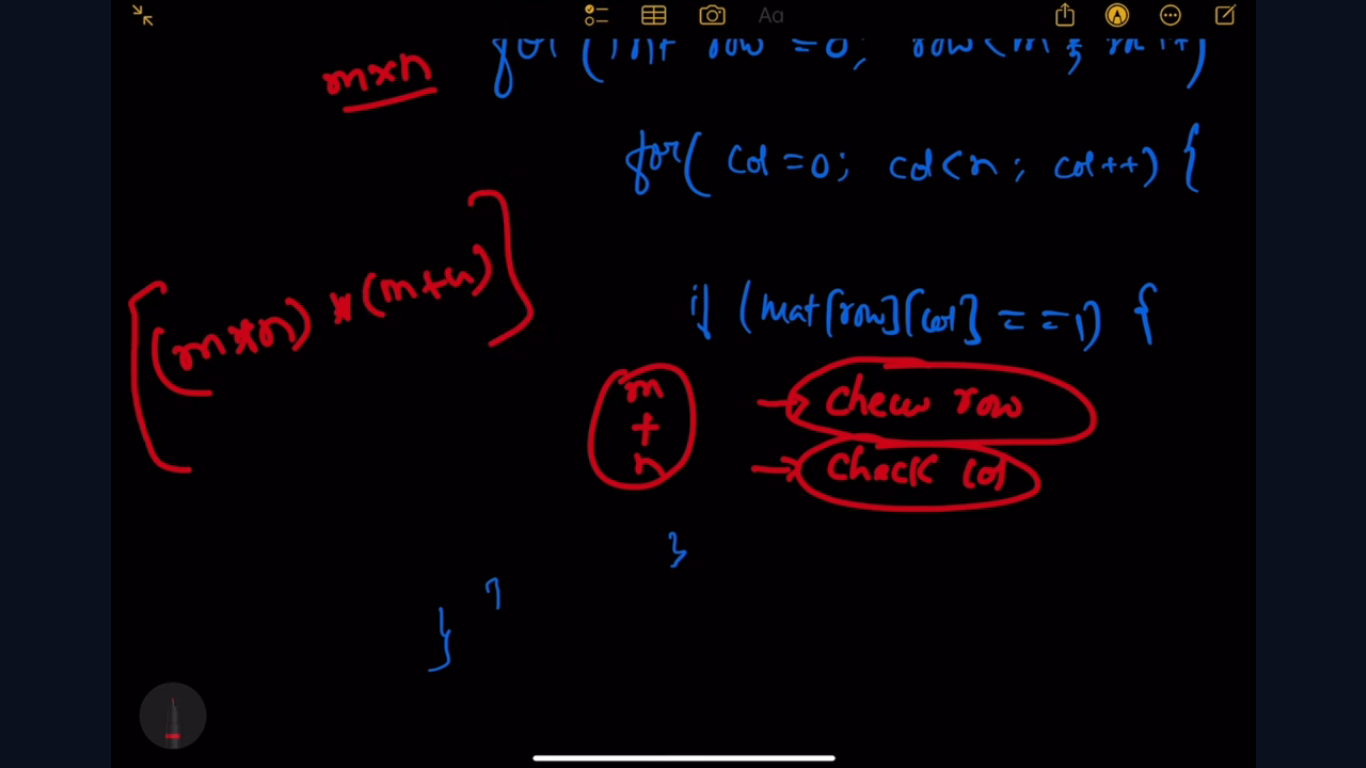 Aa
m×n
for(int row =0; row<m; m++)
for( col =0; col<n; col++) {
[(m*n) * (m+n)]
if (mat[row][col] ==1) {
m
+
n
→ check row
→ check col
}
}
}